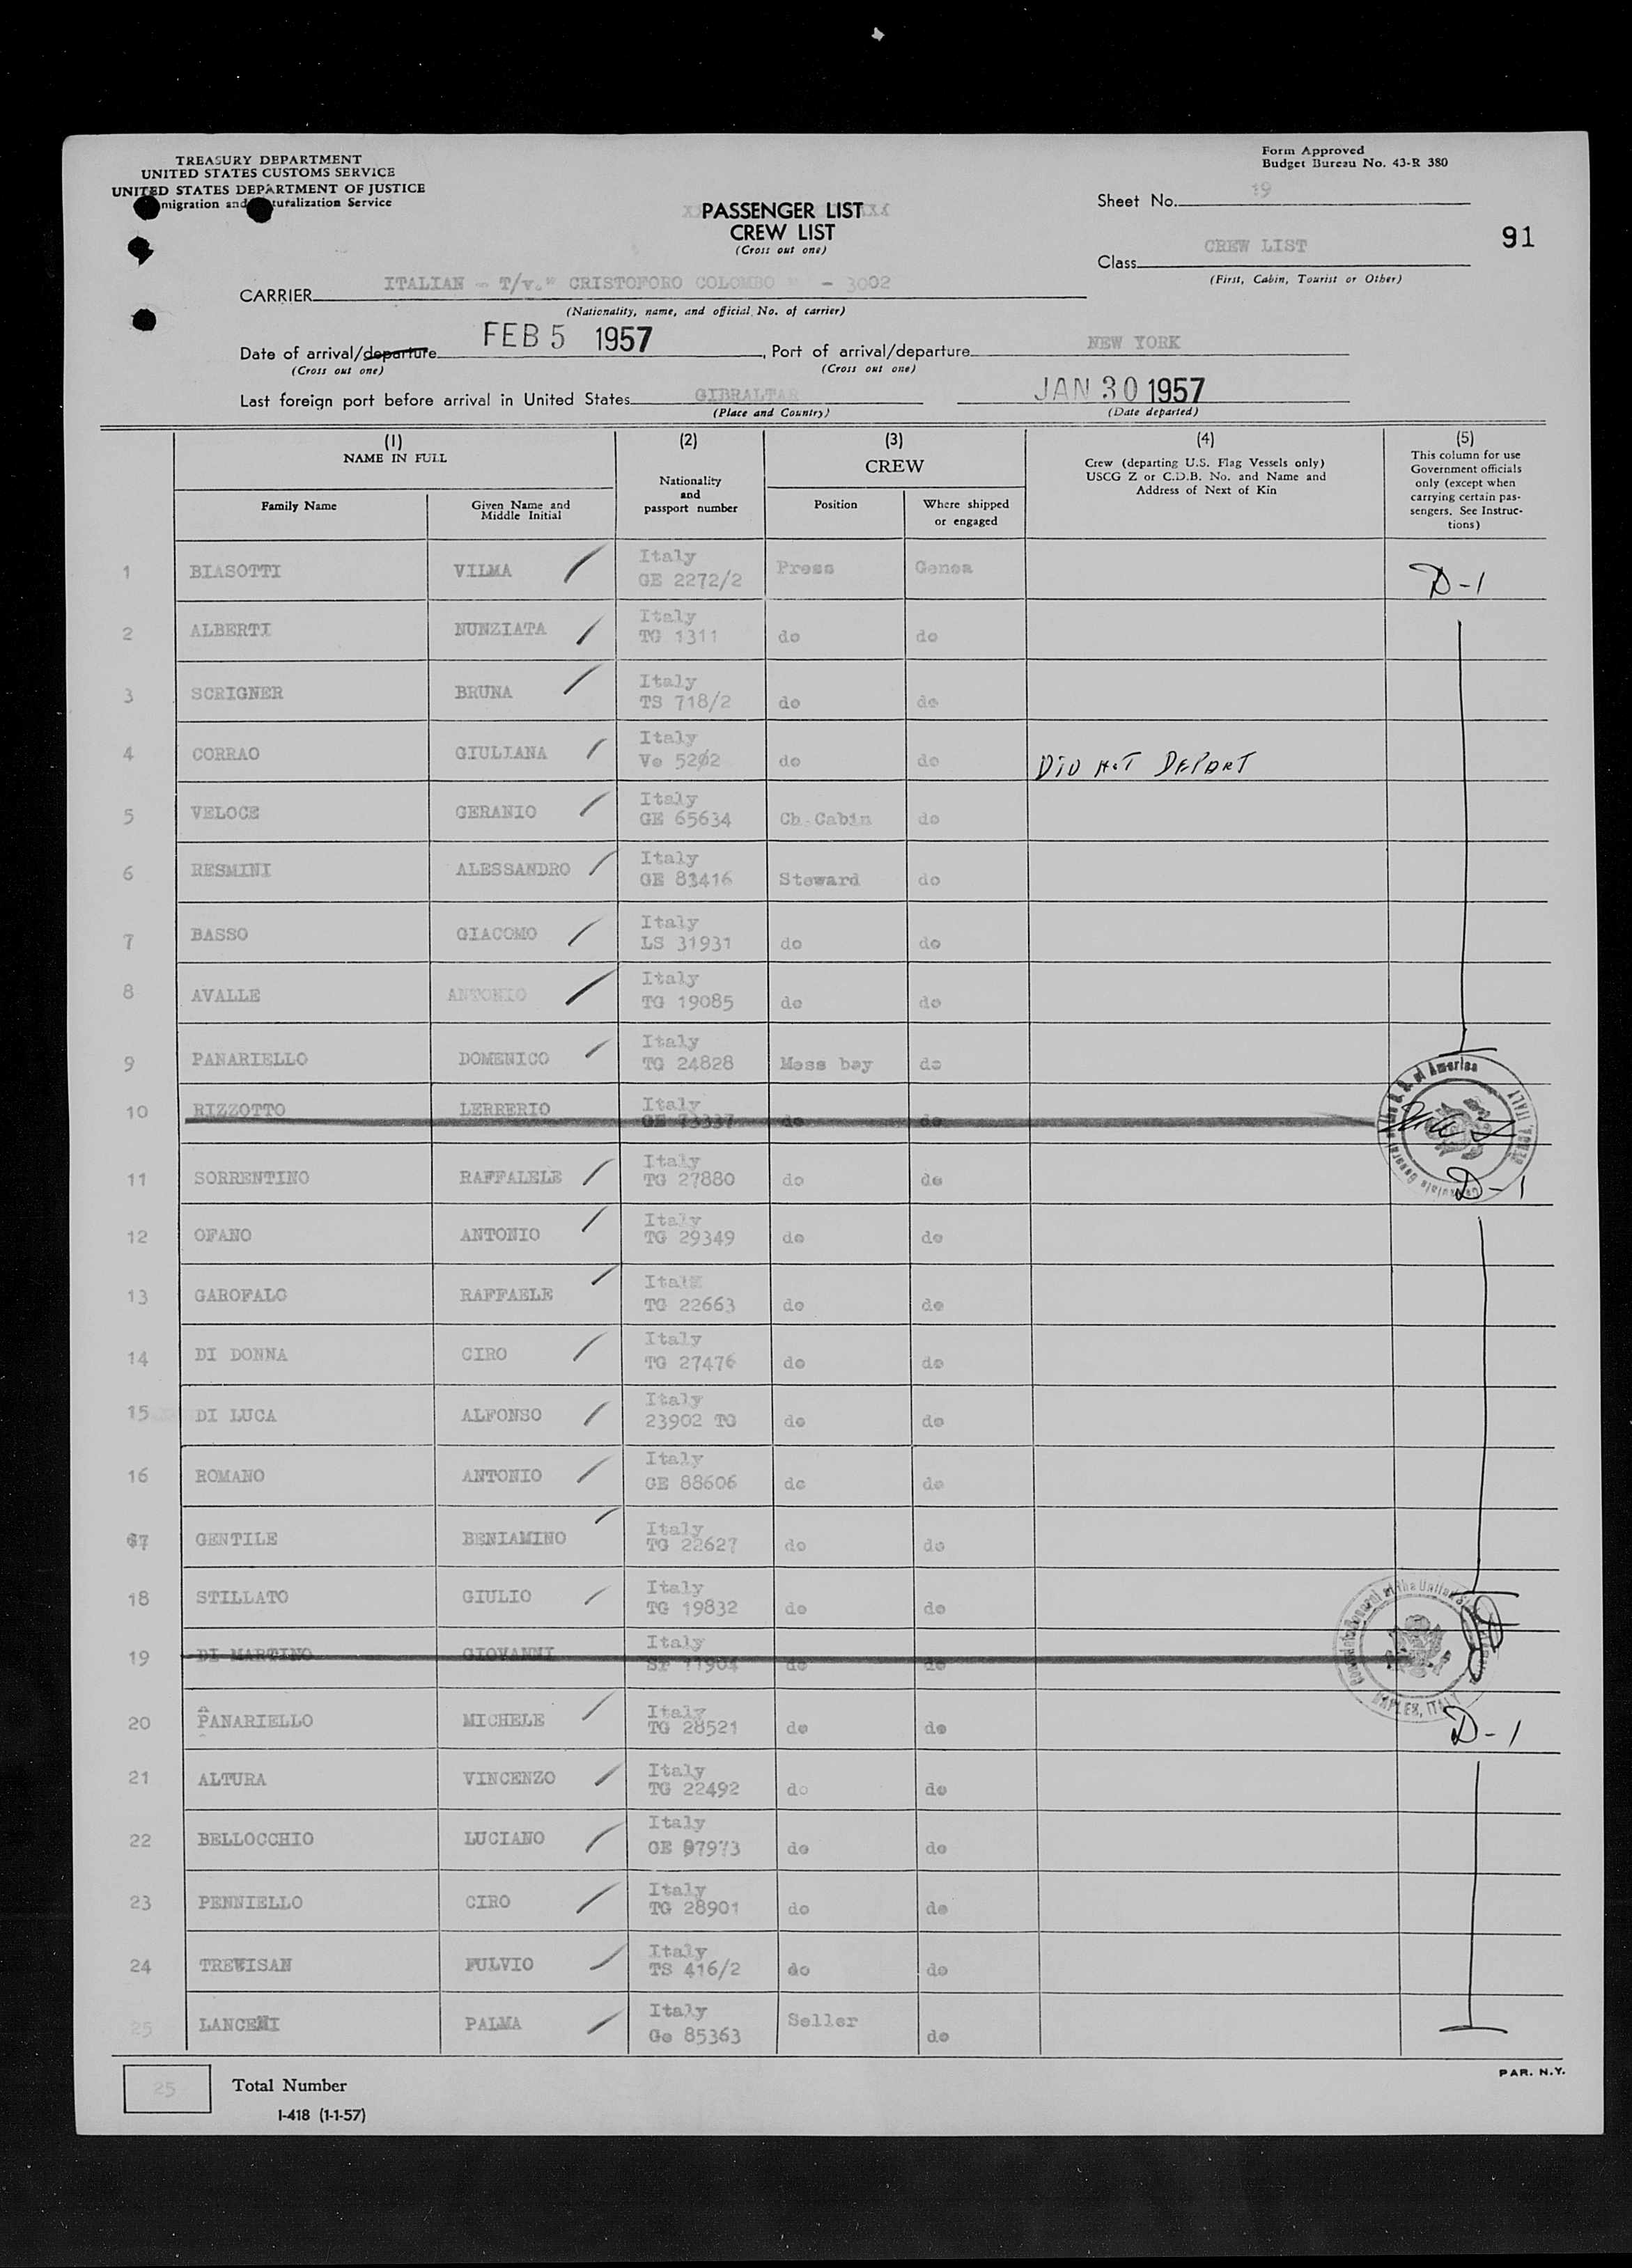 TREASURY DEPARTMENT
UNITED STATES CUSTOMS SERVICE
UNITED STATES DEPARTMENT OF JUSTICE
migration and turalization Service
Form Approved
Budget Bureau No. 43-R 380
Sheet No. 19
PASSENGER LIST
CREW LIST
(Cross out one)
91
Class CREW LIST
(First, Cabin, Tourist or Other)
CARRIER ITALIAN - T/v." CRISTOFORO COLOMBO " - 3002
(Nationality, name, and official No. of carrier)
Date of arrival/departure FEB 5 1957, Port of arrival/departure NEW YORK
(Cross out one) (Cross out one)
Last foreign port before arrival in United States GIBRALTAR JAN 30 1957
(Place and Country) (Date departed)
(1) (2) (3) (4) (5)
NAME IN FULL
Family Name
Given Name and Middle Initial
Nationality and passport number
CREW
Position
Where shipped or engaged
Crew (departing U.S. Flag Vessels only) USCG Z or C.D.B. No. and Name and Address of Next of Kin
This column for use Government officials only (except when carrying certain passengers. See Instructions)
1 BIASOTTI VILMA Italy GE 2272/2 Press Genoa D-1
2 ALBERTI NUNZIATA Italy TG 1311 do do
3 SCRIGNER BRUNA Italy TS 718/2 do do
4 CORRAO GIULIANA Italy Ve 5202 do do DID NOT DEPART
5 VELOCE GERANIO Italy GE 65634 Ch.Cabin do
6 RESMINI ALESSANDRO Italy GE 83416 Steward do
7 BASSO GIACOMO Italy LS 31931 do do
8 AVALLE ANTONIO Italy TG 19085 do do
9 PANARIELLO DOMENICO Italy TG 24828 Mess boy do
10 RIZZOTTO LERRERIO Italy GE 73337 do do
11 SORRENTINO RAFFALELE Italy TG 27880 do do D-1
12 OFANO ANTONIO Italy TG 29349 do do
13 GAROFALO RAFFAELE Ital TG 22663 do do
14 DI DONNA CIRO Italy TG 27476 do do
15 DI LUCA ALFONSO Italy 23902 TG do do
16 ROMANO ANTONIO Italy GE 88606 do do
17 GENTILE BENIAMINO Italy TG 22627 do do
18 STILLATO GIULIO Italy TG 19832 do do
19 DI MARTINO GIOVANNI Italy 11904 do do
NAPLES, ITALY
20 PANARIELLO MICHELE Italy TG 28521 do do D-1
21 ALTURA VINCENZO Italy TG 22492 do do
22 BELLOCCHIO LUCIANO Italy GE 97973 do do
23 PENNIELLO CIRO Italy TG 28901 do do
24 TREVISAN FULVIO Italy TS 416/2 do do
25 LANCENI PALMA Italy Ge 85363 Seller do
25 Total Number
I-418 (1-1-57)
PAR. N.Y.